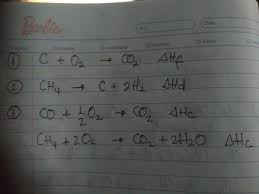 Barbie
① C + O₂ → CO₂ ΔHf
② CH₄ → C + 2H₂ ΔHd
③ CO + 1/2 O₂ → CO₂ ΔHc
CH₄ + 2O₂ → CO₂ + 2H₂O ΔHc